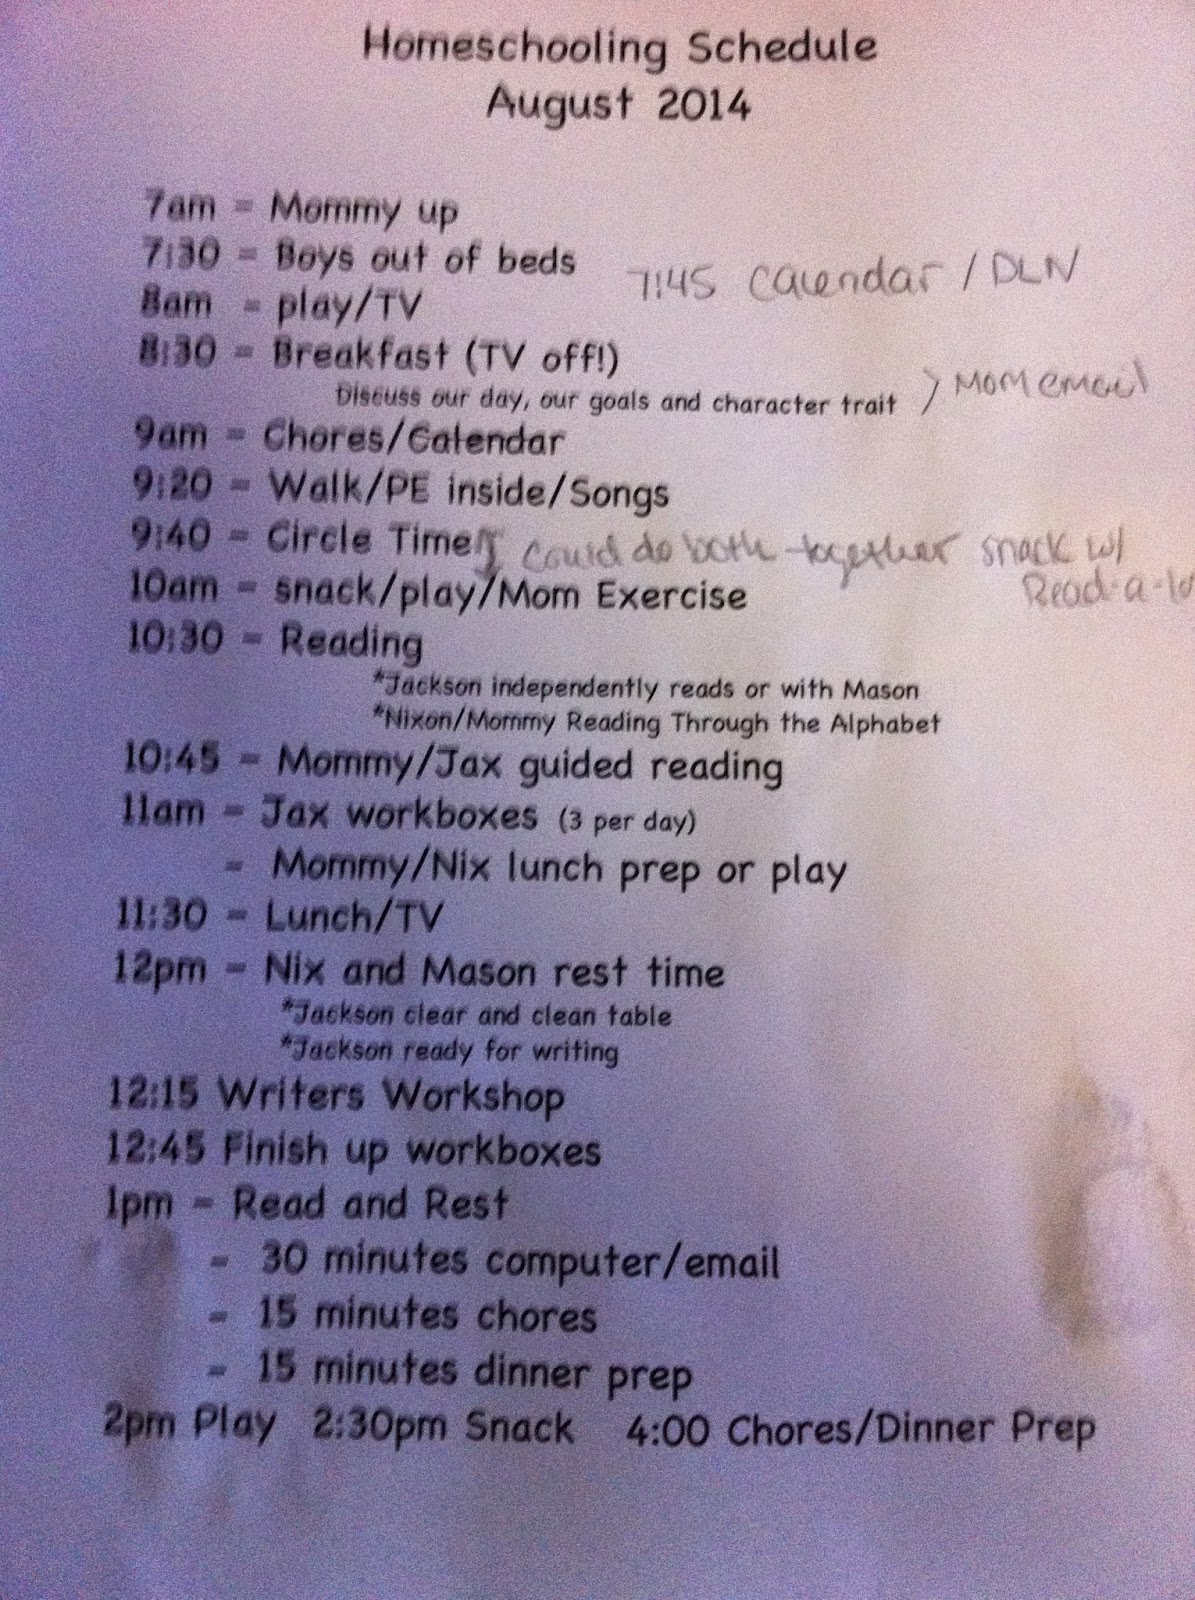 Homeschooling Schedule
August 2014
7am = Mommy up
7:30 = Boys out of beds
7:45 Calendar / DLN
8am = play/TV
8:30 = Breakfast (TV off!)
Discuss our day, our goals and character trait } Mom email
9am = Chores/Calendar
9:20 = Walk/PE inside/Songs
9:40 = Circle Time } Could do both together snack w/
Read-a-lo
10am = snack/play/Mom Exercise
10:30 = Reading
*Jackson independently reads or with Mason
*Nixon/Mommy Reading Through the Alphabet
10:45 = Mommy/Jax guided reading
11am = Jax workboxes (3 per day)
= Mommy/Nix lunch prep or play
11:30 = Lunch/TV
12pm = Nix and Mason rest time
*Jackson clear and clean table
*Jackson ready for writing
12:15 Writers Workshop
12:45 Finish up workboxes
1pm = Read and Rest
- 30 minutes computer/email
- 15 minutes chores
- 15 minutes dinner prep
2pm Play 2:30pm Snack 4:00 Chores/Dinner Prep